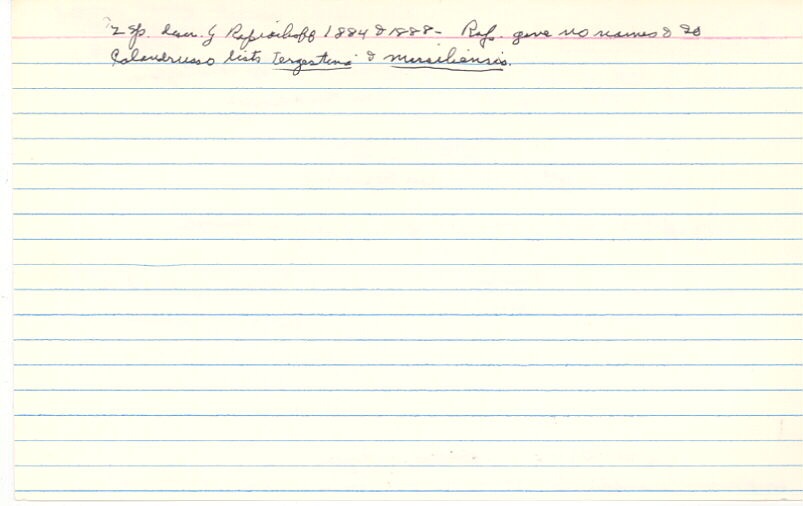 2 sp. descr. by Repiachoff 1884 & 1888 - Rep. gave no names & so
Calandruccio lists tergestina & marsiliensis.